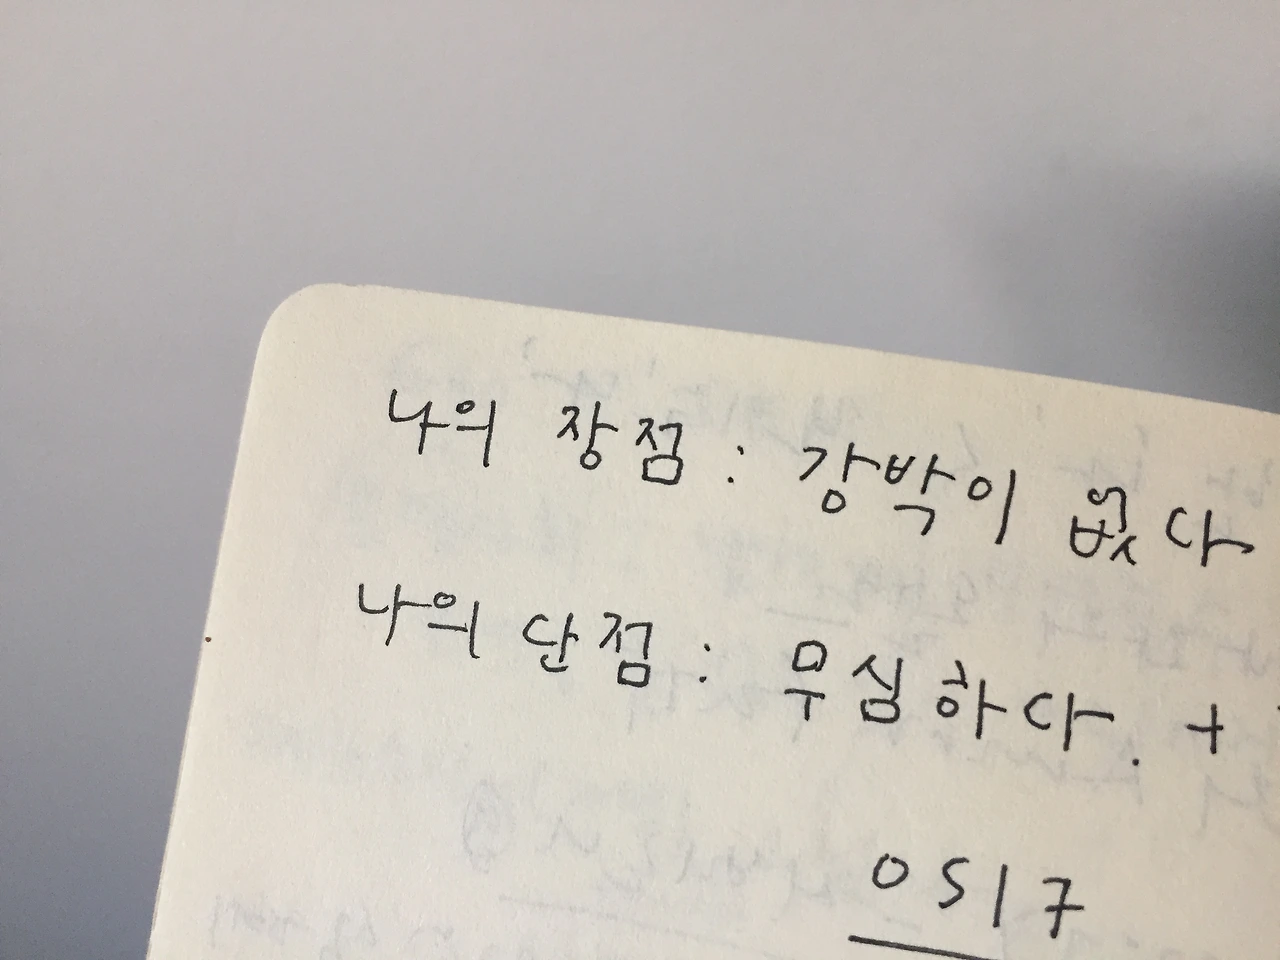 나의 장점 : 강박이 없다
나의 단점 : 무심하다. +
0517